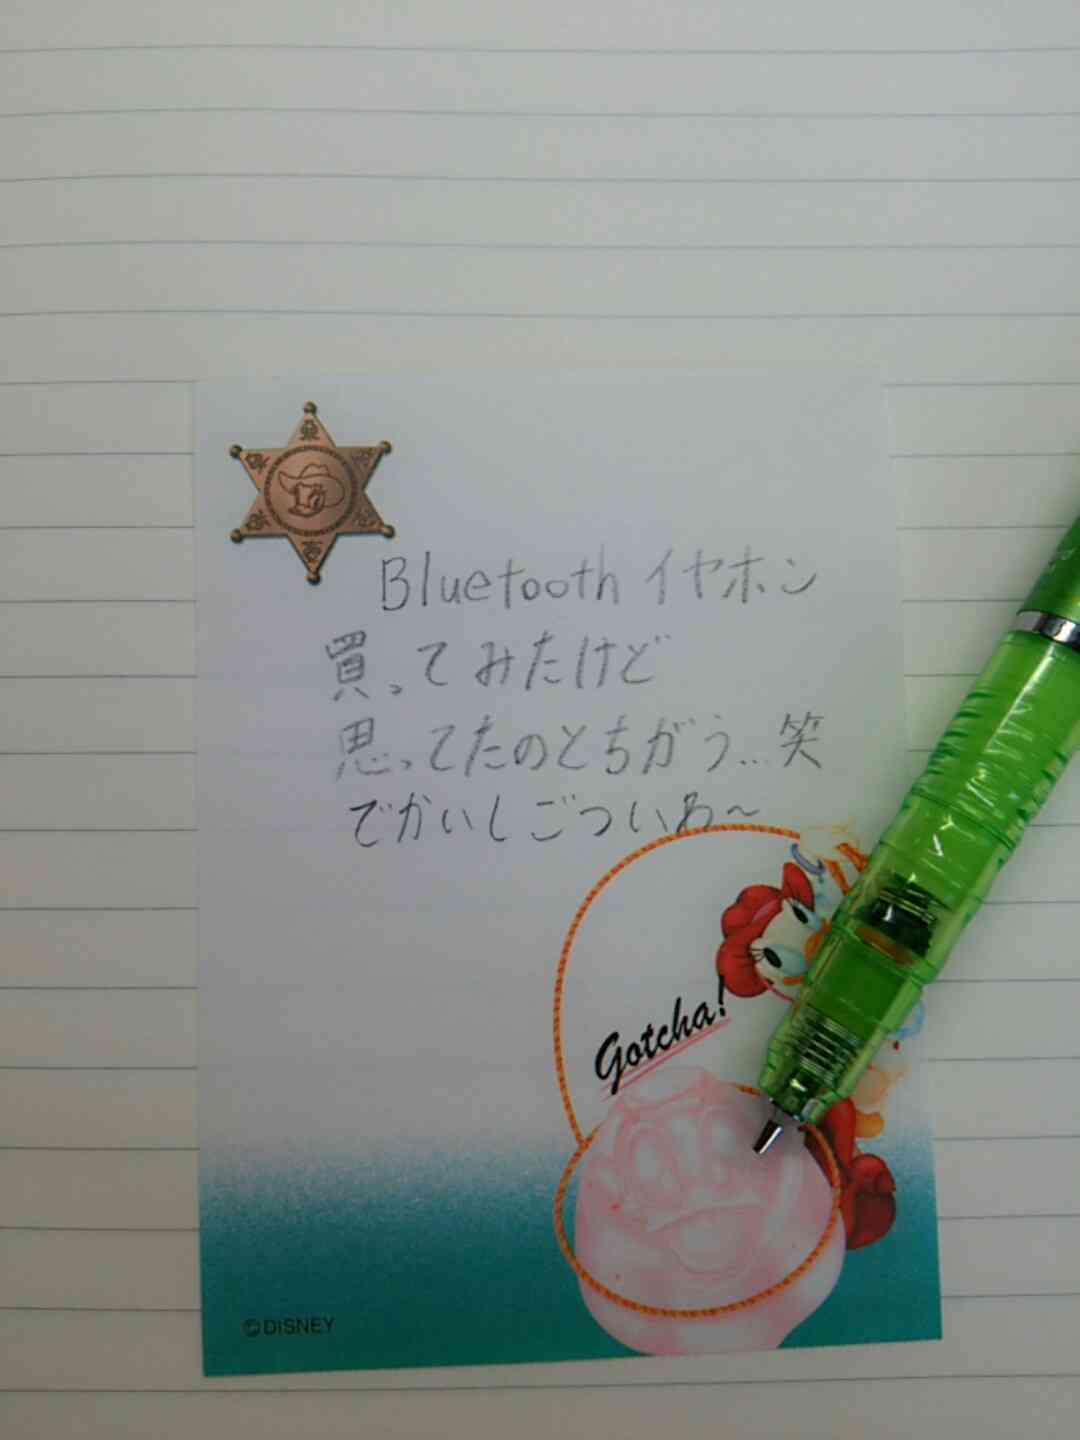 Bluetooth イヤホン
買ってみたけど
思ってたのとちがう…笑
でかいしごついわ~
Gotcha!
©DISNEY